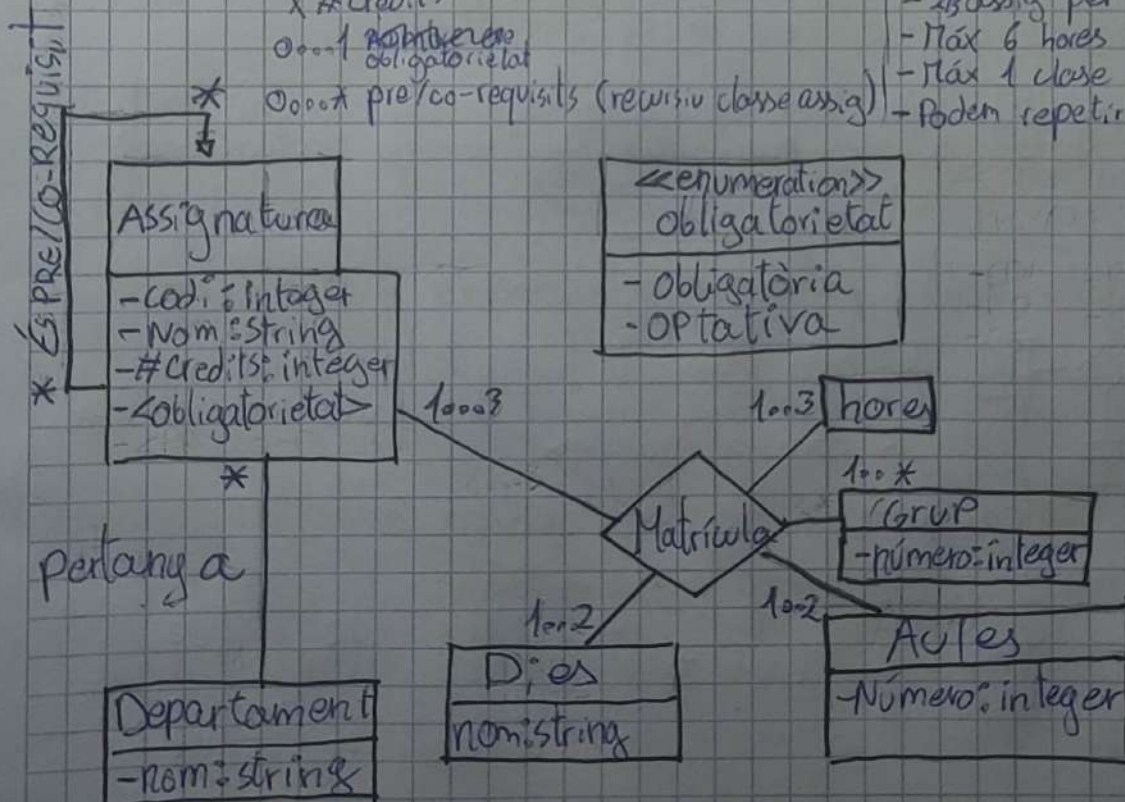 0...1
obligatorietat
0...* pre/co-requisits (recursiu classe assig)
- Máx 6 hores
- Máx 1 clase
- Podem repetir
* És PRE/CO-Requisit
*
Assignatura
- codi: integer
- Nom: string
- #Credits: integer
- <obligatorietat>
<<enumeration>>
obligatorietat
- obligatòria
- OPtativa
1...3
1..3
hores
1..*
Grup
- número: integer
Matrícula
*
pertany a
1..2
1..2
Dies
nom: string
Aules
- Número: integer
Departament
- nom: string